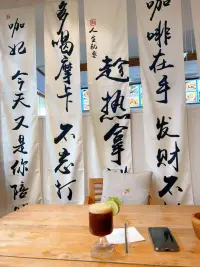 咖啡在手 发财不
人生鸡卷
趁热拿
多喝摩卡 不忘打
咖妃 今天又是你陪